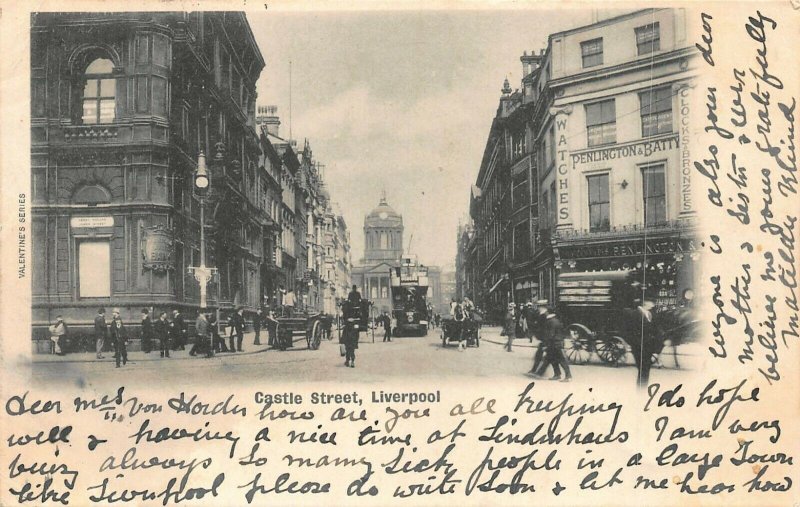 VALENTINE'S SERIES
WATCHES
PENLINGTON & BATTY
CLOCKS & BRONZES
PENLINGTON &
Castle Street, Liverpool
Dear Mrs Von Horder how are you all keeping I do hope
well & having a nice time at Lindenhaus I am very
busy always so many Sick people in a large Town
like Liverpool please do write Soon & let me hear how
everyone is also your dear
mother & Sister & ever
believe me yours gratefully
Matilda